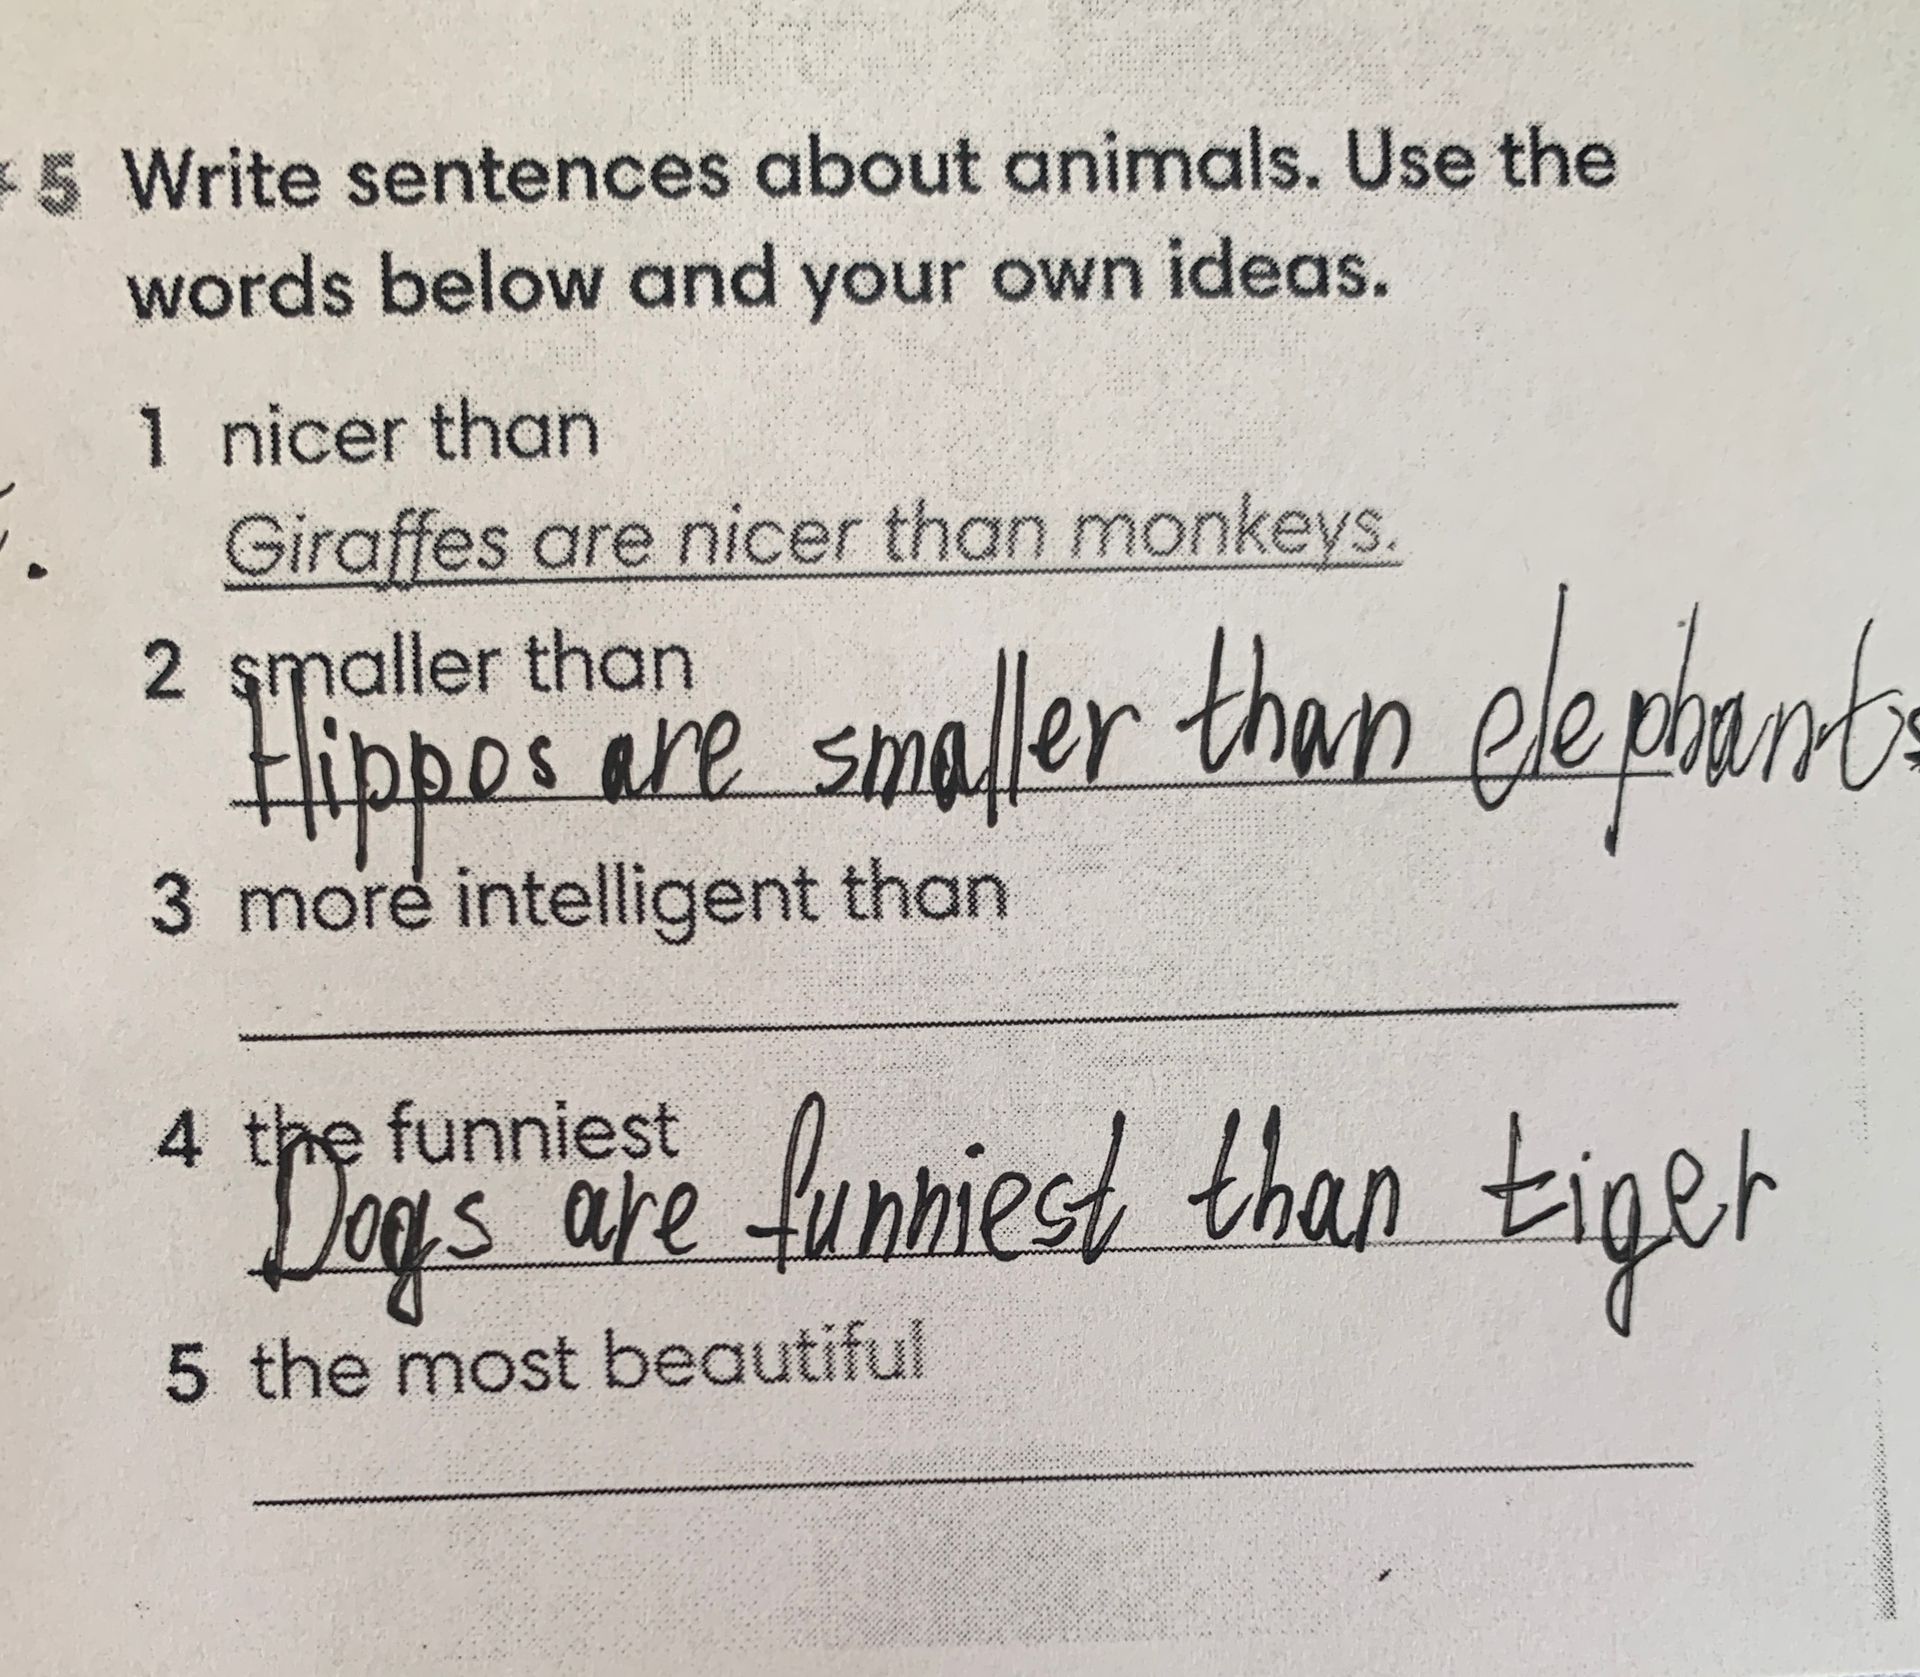 5 Write sentences about animals. Use the
words below and your own ideas.
1 nicer than
Giraffes are nicer than monkeys.
2 smaller than
Hippos are smaller than elephants
3 more intelligent than
4 the funniest
Dogs are funniest than tiger
5 the most beautiful